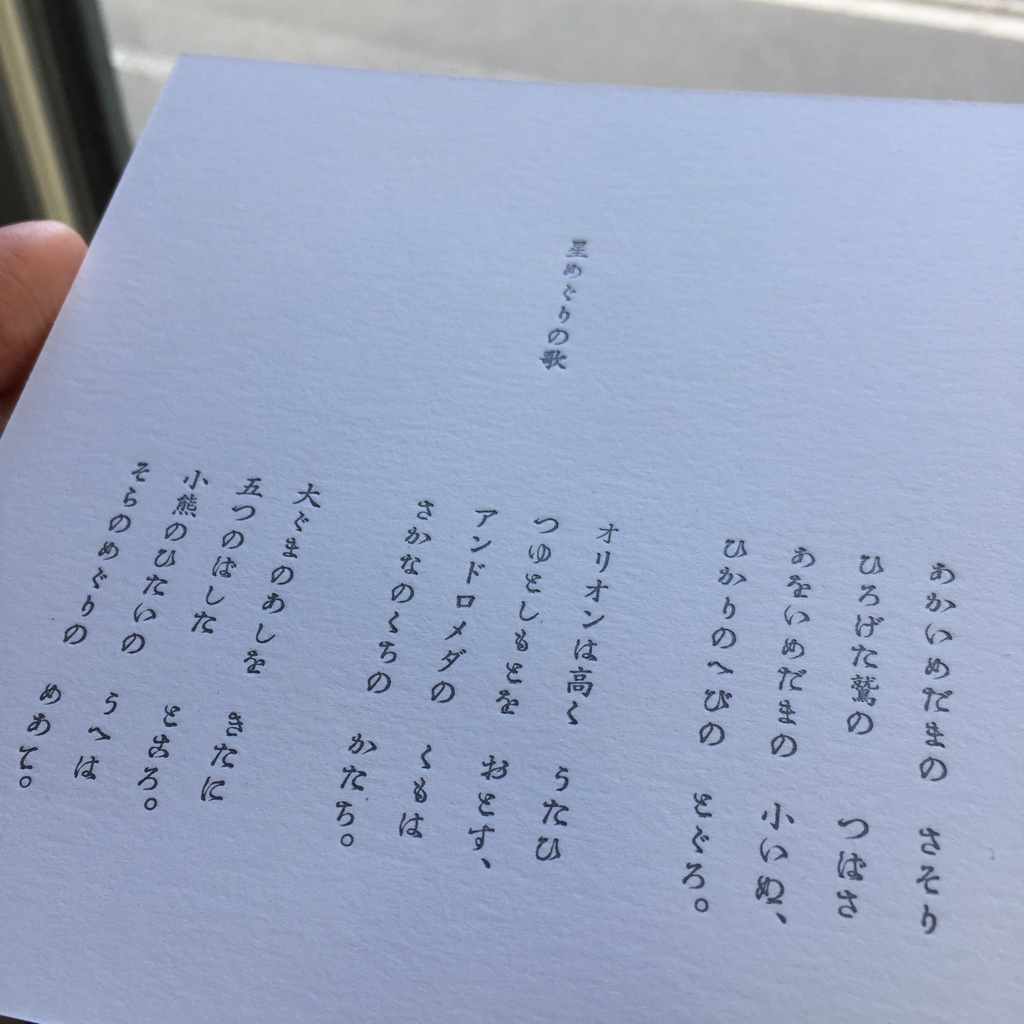 星めぐりの歌
あかいめだまの　さそり
ひろげた鷲の　つばさ
あをいめだまの　小いぬ、
ひかりのへびの　とぐろ。
オリオンは高く　うたひ
つゆとしもとを　おとす、
アンドロメダの　くもは
さかなのくちの　かたち。
大ぐまのあしを　きたに
五つのばした　ところ。
小熊のひたいの　うへは
そらのめぐりの　めあて。